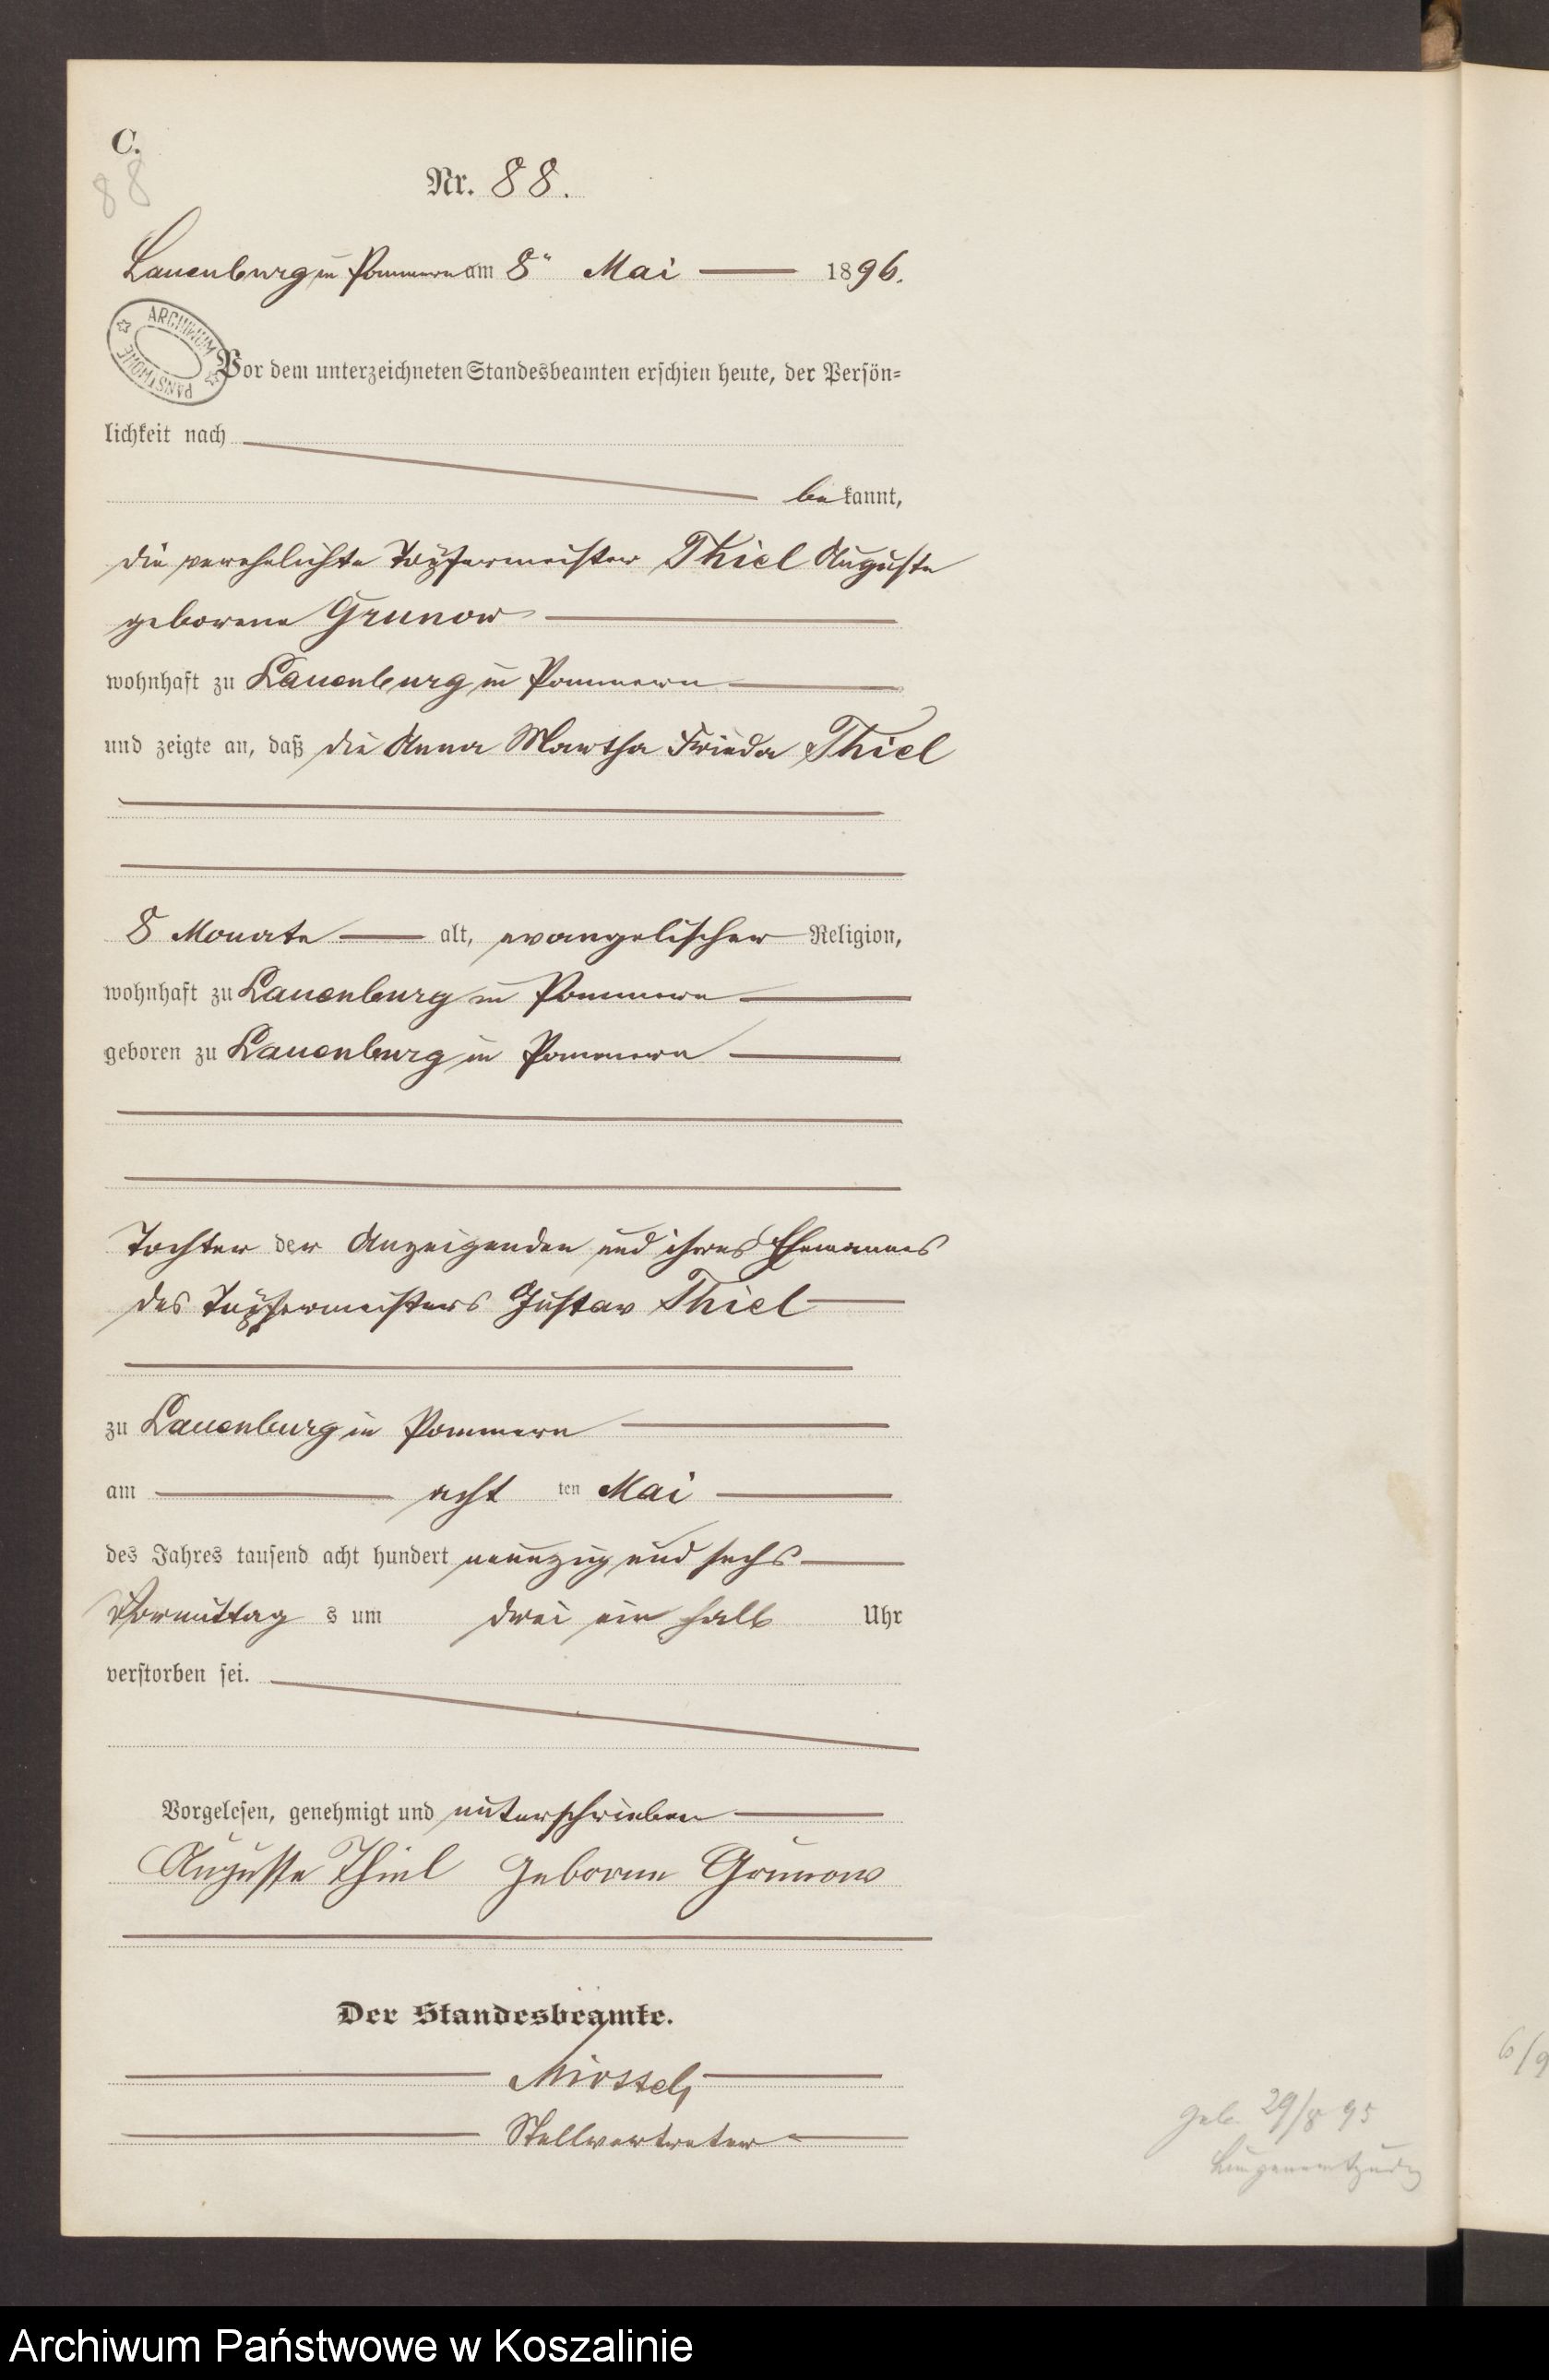 C.
88
Nr. 88.
Lauenburg in Pommern am 8ᵗᵉⁿ Mai 1896.
ARCHIWUM PAŃSTWOWE
Vor dem unterzeichneten Standesbeamten erschien heute, der Persön-
lichkeit nach
bekannt,
die verehelichte Töpfermeister Thiel Auguste
geborene Grunow
wohnhaft zu Lauenburg in Pommern
und zeigte an, daß die Anna Martha Frieda Thiel
8 Monate alt, evangelischer Religion,
wohnhaft zu Lauenburg in Pommern
geboren zu Lauenburg in Pommern
Tochter der Anzeigenden und ihres Ehemannes
des Töpfermeisters Gustav Thiel
zu Lauenburg in Pommern
am acht ten Mai
des Jahres tausend acht hundert neunzig und sechs
Vormittag s um drei ein halb Uhr
verstorben sei.
Vorgelesen, genehmigt und unterschrieben
Auguste Thiel geborene Grunow
Der Standesbeamte.
Stellvertreter
geb. 29/8 95
Lungenentzündg
6/9
Archiwum Państwowe w Koszalinie